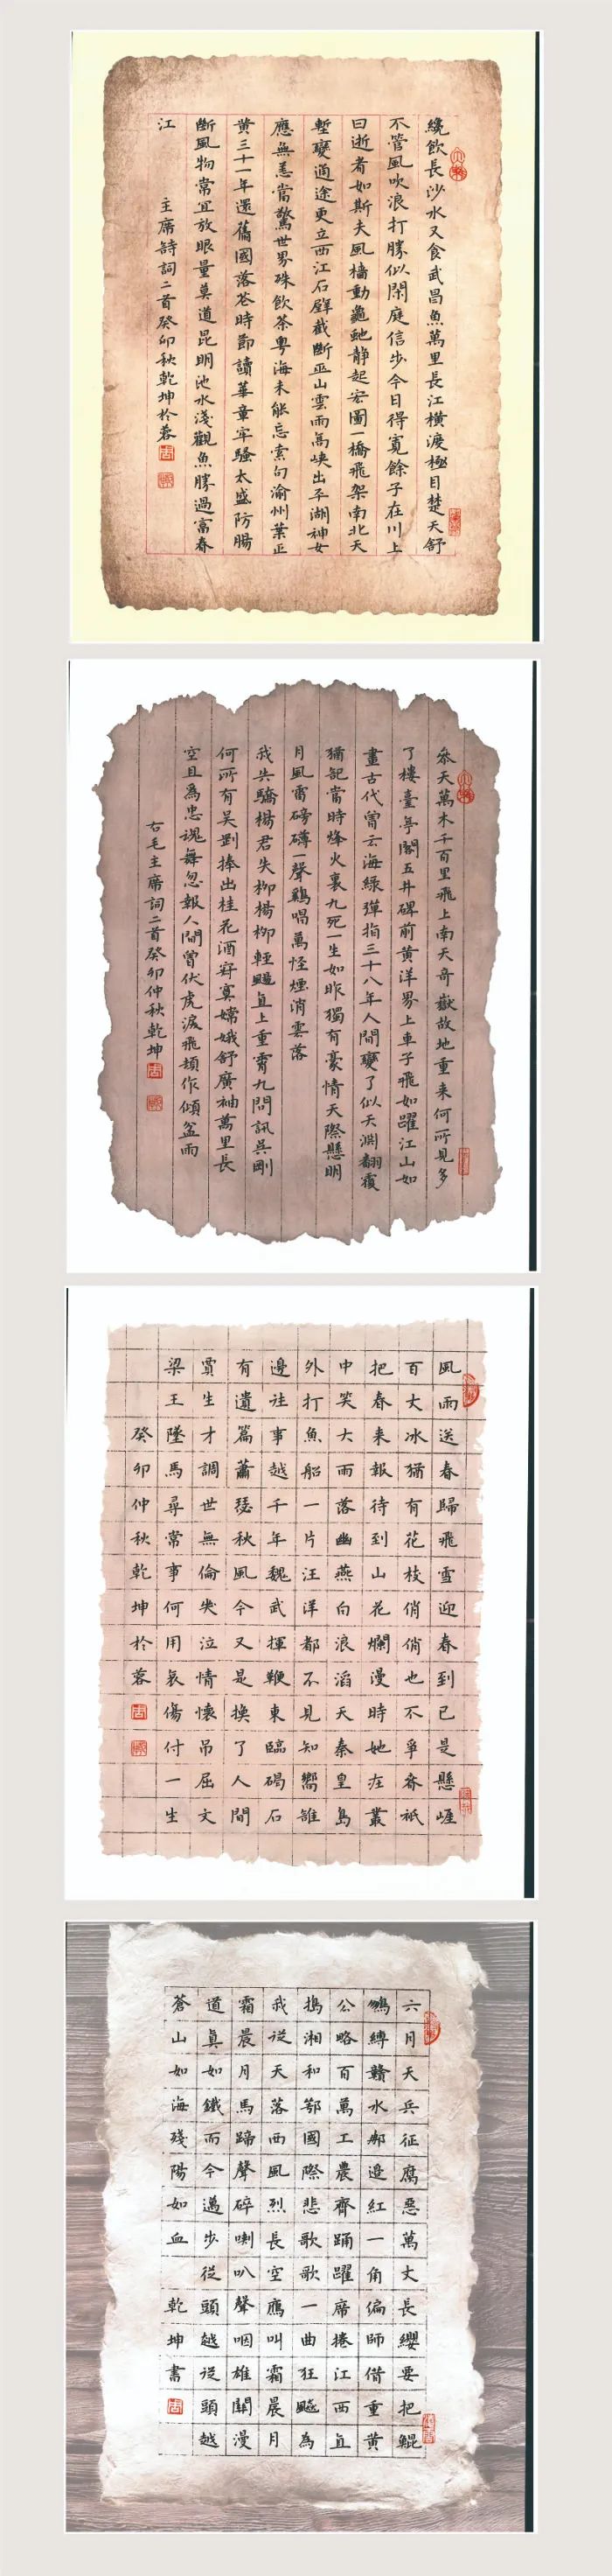 纔飲長沙水又食武昌魚萬里長江橫渡極目楚天舒
不管風吹浪打勝似閑庭信步今日得寬餘子在川上
曰逝者如斯夫風檣動龜蛇静起宏圖一橋飛架南北天
塹變通途更立西江石壁截斷巫山雲雨高峽出平湖神女
應無恙當驚世界殊飲茶粵海未能忘索句渝州葉正
黄三十一年還舊國落花時節讀華章牢騷太盛防腸
斷風物常宜放眼量莫道昆明池水淺觀魚勝過富春
江
主席詩詞二首癸卯秋乾坤於蓉
參天萬木千百里飛上南天奇嶽故地重来何所見多
了樓臺亭閣五井碑前黄洋界上車子飛如躍江山如
畫古代曾云海緑彈指三十八年人間變了似天淵翻覆
猶記當時烽火裏九死一生如昨獨有豪情天際懸明
月風雷磅礴一聲鷄唱萬怪煙消雲落
我失驕楊君失柳楊柳輕颺直上重霄九問訊吳剛
何所有吳剛捧出桂花酒寂寞嫦娥舒廣袖萬里長
空且為忠魂舞忽報人間曾伏虎淚飛頓作傾盆雨
右毛主席詞二首癸卯仲秋乾坤
風雨送春歸飛雪迎春到已是懸崖
百丈冰猶有花枝俏俏也不爭春祇
把春来報待到山花爛漫時她在叢
中笑大雨落幽燕白浪滔天秦皇島
外打魚船一片汪洋都不見知嚮誰
邊往事越千年魏武揮鞭東臨碣石
有遺篇蕭瑟秋風今又是換了人間
賈生才調世無倫哭泣情懷吊屈文
梁王墜馬尋常事何用哀傷付一生
癸卯仲秋乾坤於蓉
六月天兵征腐惡萬丈長纓要把鯤
鵬縛贛水那邊紅一角偏師借重黄
公略百萬工農齊踊躍席捲江西直
搗湘和鄂國際悲歌歌一曲狂飈為
我從天落西風烈長空鴈叫霜晨月
霜晨月馬蹄聲碎喇叭聲咽雄關漫
道真如鐵而今邁步從頭越從頭越
蒼山如海殘陽如血 乾坤書